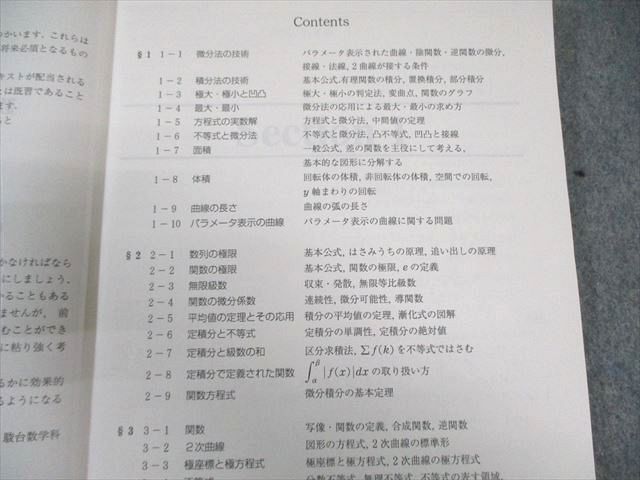 かいます．これらは
将来必須となるもの
キストが配当される
とは既習であること
ます．
ると
かなければなら
にしましょう．
かることもある
ませんが，前
むことができ
に粘り強く考
るかに効果的
るようになる
駿台数学科
Contents
§1 1－1 微分法の技術 パラメータ表示された曲線・陰関数・逆関数の微分，
接線・法線，2曲線が接する条件
1－2 積分法の技術 基本公式，有理関数の積分，置換積分，部分積分
1－3 極大・極小と凹凸 極大・極小の判定法，変曲点，関数のグラフ
1－4 最大・最小 微分法の応用による最大・最小の求め方
1－5 方程式の実数解 方程式と微分法，中間値の定理
1－6 不等式と微分法 不等式と微分法，凸不等式，凹凸と接線
1－7 面積 一般公式，差の関数を主役にして考える，
基本的な図形に分解する
1－8 体積 回転体の体積，非回転体の体積，空間での回転，
y 軸まわりの回転
1－9 曲線の長さ 曲線の弧の長さ
1－10 パラメータ表示の曲線 パラメータ表示の曲線に関する問題
§2 2－1 数列の極限 基本公式，はさみうちの原理，追い出しの原理
2－2 関数の極限 基本公式，関数の極限，e の定義
2－3 無限級数 収束・発散，無限等比級数
2－4 関数の微分係数 連続性，微分可能性，導関数
2－5 平均値の定理とその応用 積分の平均値の定理，漸化式の図解
2－6 定積分と不等式 定積分の単調性，定積分の絶対値
2－7 定積分と級数の和 区分求積法，Σf(k) を不等式ではさむ
2－8 定積分で定義された関数 ∫αβ |f(x)|dx の取り扱い方
2－9 関数方程式 微分積分の基本定理
§3 3－1 関数 写像・関数の定義，合成関数，逆関数
3－2 2次曲線 図形の方程式，2次曲線の標準形
3－3 極座標と極方程式 極座標と極方程式，2次曲線の極方程式
不等式 分数不等式，無理不等式，不等式の表す領域，